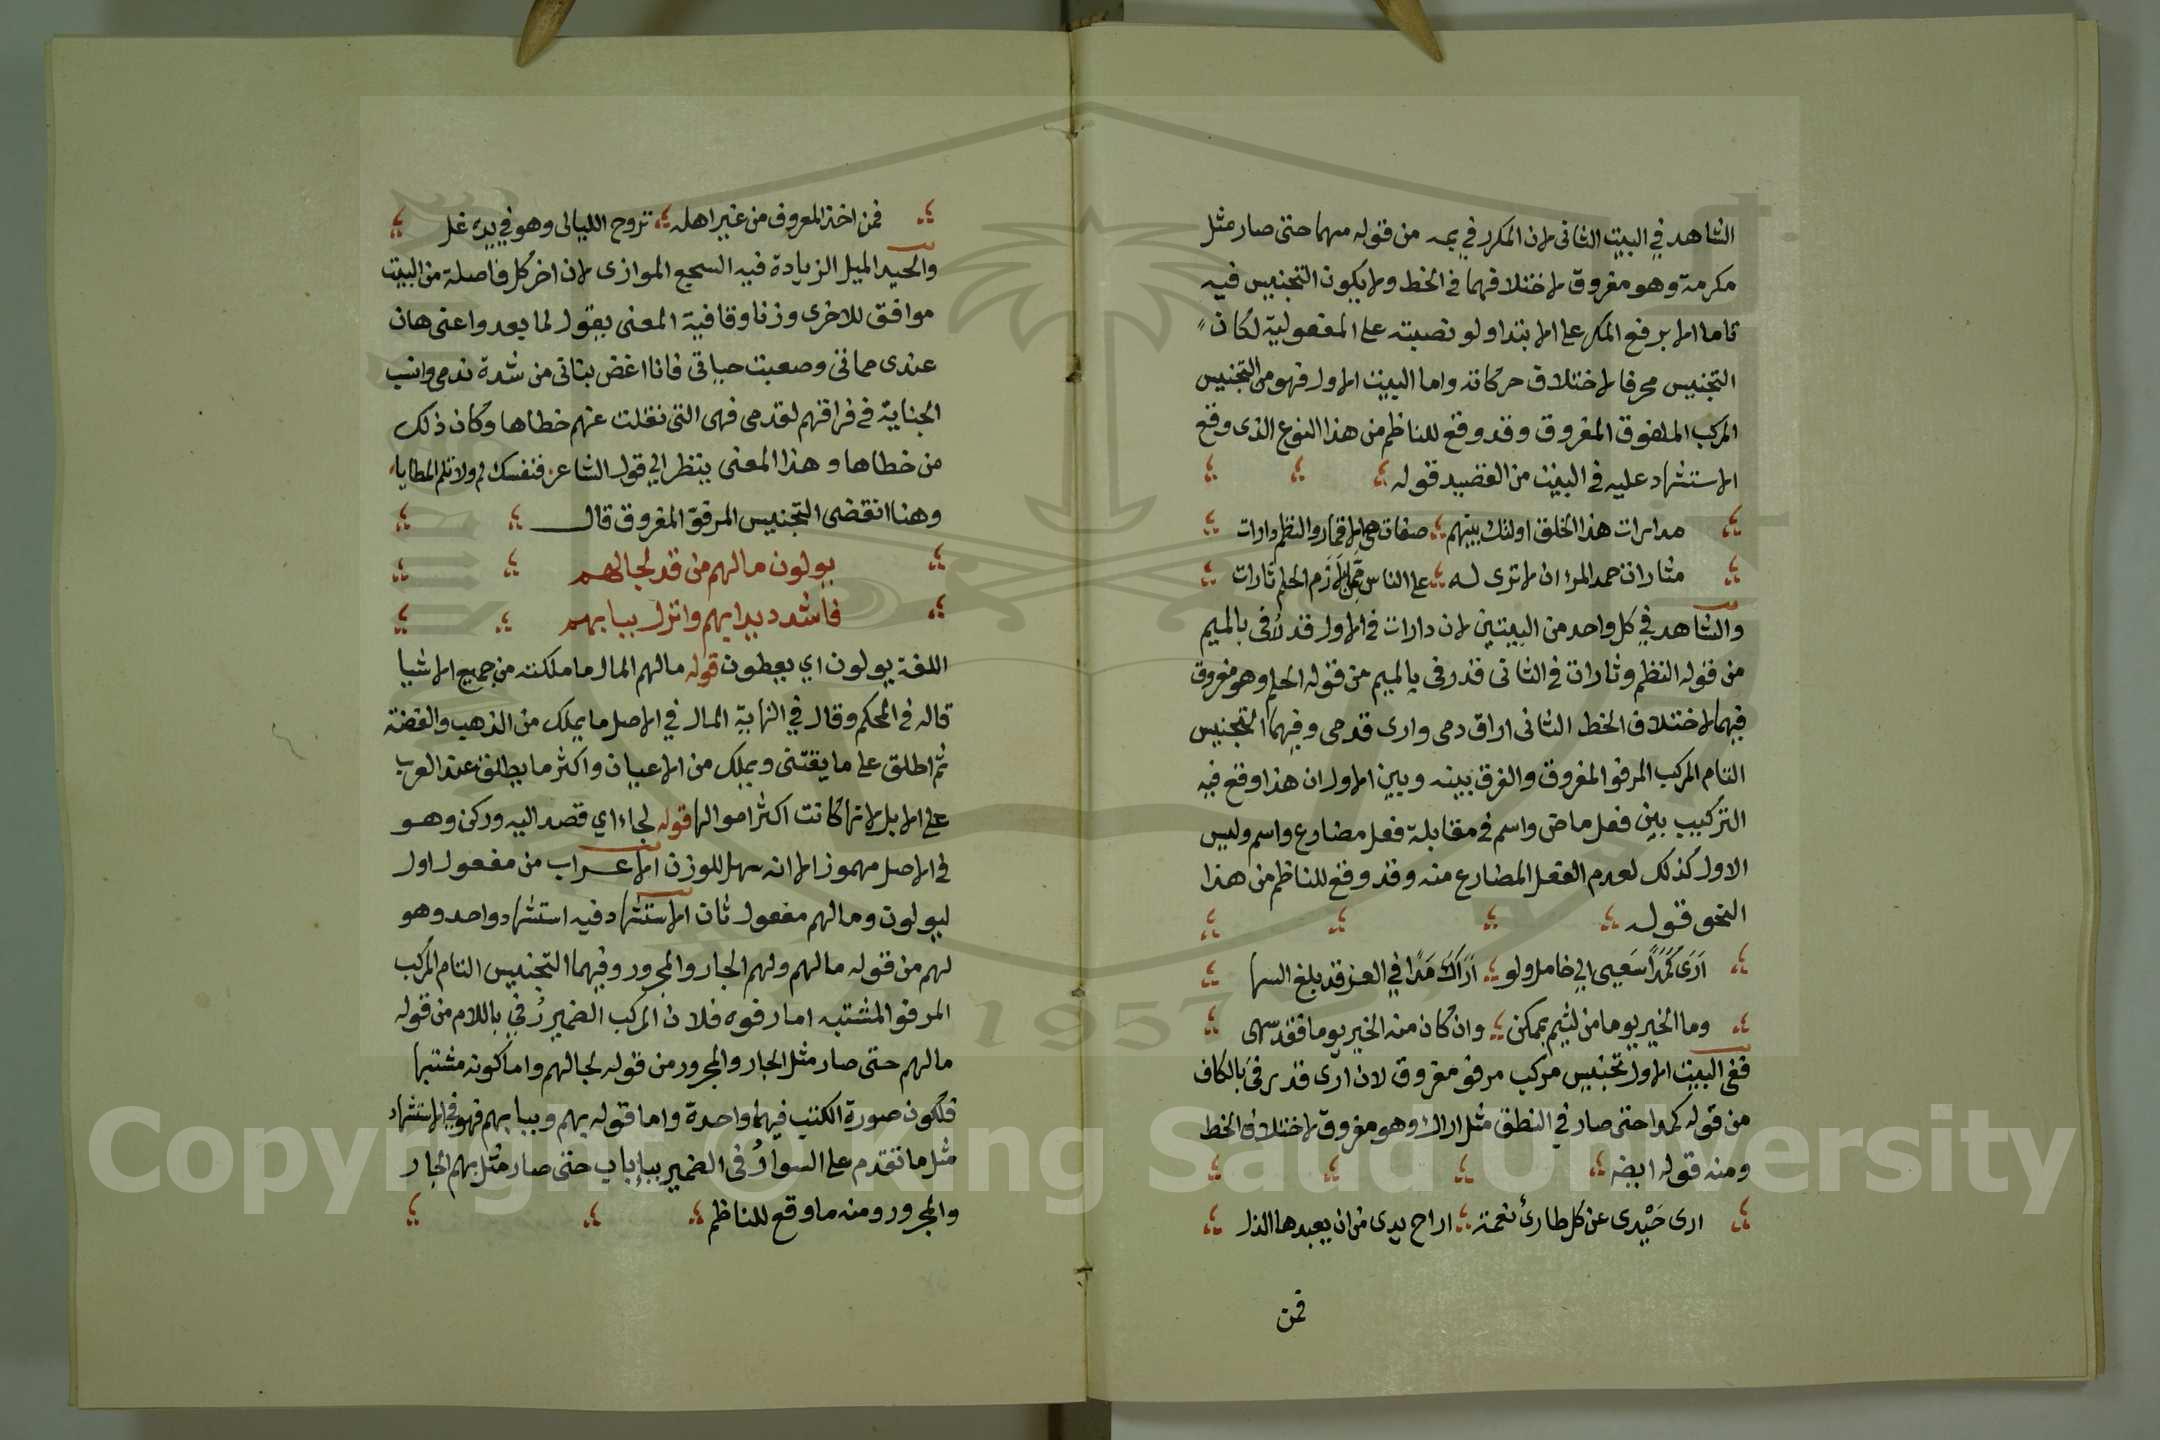 الشاهد في البيت الثاني لان المكرر في يمه من قوله مهما حتى صار مثل
مكرمة وهو مفروق لاختلافهما في الخط ولا يكون التجنيس فيه
تاما الا برفع المكر على الابتدا ولو نصبته على المفعولية لكان
التجنيس محرفا لاختلاف حركاته واما البيت الاول فهو من التجنيس
المركب الملفوق المفروق وقد وقع للناظم من هذا النوع الذى وقع
الاستشهاد عليه في البيت من القصيد قوله
مدارات هذا الخلق اولتك بينهم صفات هي الاقمار والنظم دارات
مثارات حمد المرء ان لا ترى له على الناس الزم الحلم ثارات
والشاهد في كل واحد من البيتين لان دارات في الاول قد رُفى بالميم
من قوله النظم وثارات في الثاني قد رفى بالميم من قوله الحلم وهو مفروق
فيهما لاختلاف الخط الثاني اراق دمى وارى قدمى وفيهما التجنيس
التام المركب المرفو المفروق والفرق بينه وبين الاول ان هذا وقع فيه
التركيب بين فعل ماض واسم في مقابلة فعل مضارع واسم وليس
الاول كذلك لعدم الفعل المضارع منه وقد وقع للناظم من هذا
النحو قوله
اَرَى كَمَدًا سَعيى الي خامل ولو اَرَاكَ مَدًا في العز قد بلغ السها
وما الخير يوما من لئيم بممكن وان كان منه الخير يوما فقد سهى
ففى البيت الاول تجنيس مركب مرفو مفروق لان ارى قد رفى بالكاف
من قوله كمدا حتى صار في النطق مثل اراك وهو مفروق لاختلاف الخط
ومنه قوله ايضه
ارى حَيْدى عن كل طارئ نعمة اراح يدى من ان يعبدها الذل
فمن
فمن اخذ المعروف من غير اهله تروح الليالى وهو في يده غل
والحيد الميل الزيادة فيه السجع الموازى لان اخر كل فاصلة من البيت
موافق للاخرى وزنا وقافية المعنى يقول لما بعدوا عنى هان
عندى مماتي وصعبت حياتى فانا اعض بناتى من شدة ندمى وانسب
الجناية في فراقهم لقدمى فهى التى نقلت عنهم خطاها وكان ذلك
من خطاها وهذا المعنى ينظر الي قول الشاعر فنفسك لم ولا تلم المطايا
وهنا انقضى التجنيس المرفو المفروق قال
يولون مالهم من قد لجالهم
فاشدد يدا بهم وانزل ببابهم
اللغة يولون اي يعطون قوله مالهم المال ما ملكته من جميع الاشيا
قاله في المحكم وقال في النهاية المال في الاصل ما يملك من الذهب والفضة
ثم اطلق على ما يقتنى ويملك من الاعيان واكثر ما يطلق عند العرب
على الابل لانها كانت اكثر اموالها قوله لجاء اي قصد اليه وركن وهو
في الاصل مهموز الا انه سهل للوزن الاعراب من مفعول اول
ليولون ومالهم مفعول ثان الاستشهاد فيه استشهاد واحد وهو
لهم من قوله مالهم ولهم الجار والمجرور وفيهما التجنيس التام المركب
المرفو المشتبه اما رفوه فلان المركب الضمير رُفي باللام من قوله
مالهم حتى صار مثل الجار والمجرور من قوله لجالهم واما كونه مشتبها
فلكون صورة الكتب فيهما واحدة واما قوله بهم وببابهم فهو في الاستشهاد
مثل ما تقدم على السوا رُفى الضمير ببا باب حتى صار مثل بهم الجار
والمجرور ومنه ما وقع للناظم
1957
Copyright © King Saud University